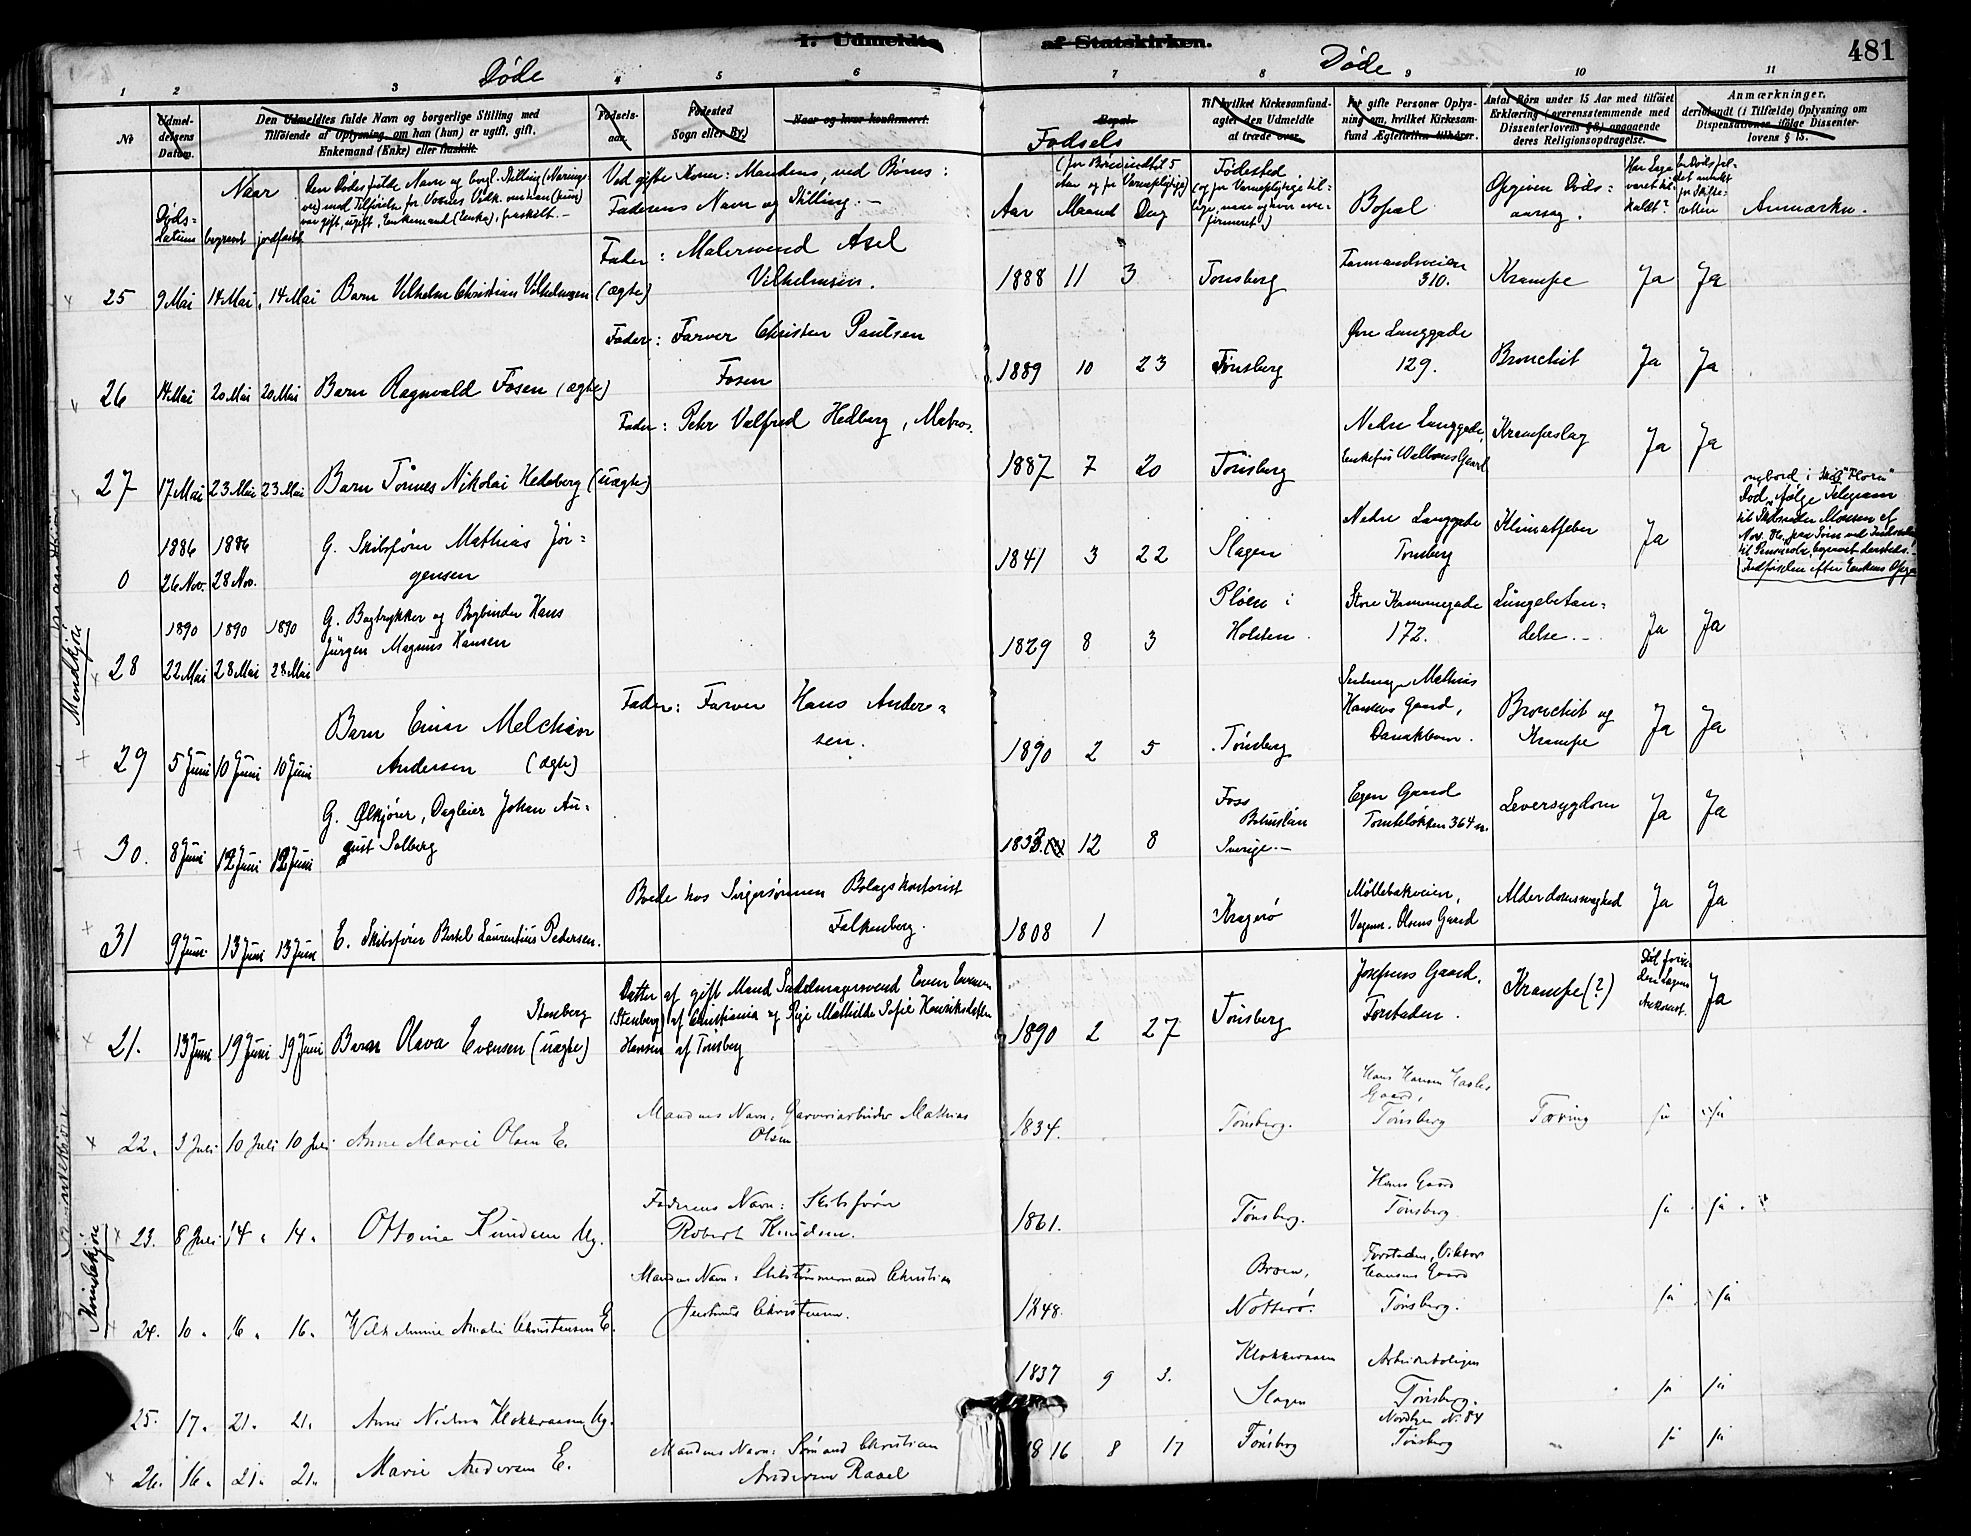 I. Udmeldte af Statskirken.
481
Døde
Døde
1 2 3 4 5 6 7 8 9 10 11
No
Udmeldelsens Datum.
Den Udmeldtes fulde Navn og borgerlige Stilling med
Tilføiende af Oplysning om han (hun) er ugift, gift,
Enkemand (Enke) eller fraskilt.
Fødselsaar.
Fødested
Sogn eller By)
Naar og hvor konfirmeret.
Bopæl.
Fødsels
Til hvilket Kirkesamfund
agter den Udmeldte
at træde over.
For gifte Personer Oplysning om, hvilket Kirkesamfund Ægtefællen tilhører.
Antal Børn under 15 Aar med tilføiet
Erklæring (overensstemmende med
Dissenterlovens § 8) angaaende
deres Religionsopdragelse.
Anmærkninger,
deriblandt (i Tilfælde) Oplysning om
Dispensationen ifølge Dissenterlovens § 15.
Naar
Døds-
datum begravet jordfæstet
Den Dødes fulde Navn og borgl. Stilling
med Tilføielse for Voxnes Vedk. om han (hun)
var gift, ugift, Enkemand (Enke), fraskilt. —
Ved gifte Koner: Mandens, ved Børns:
Faderens Navn og Stilling. —
Aar Maaned Dag
Fødested
Bopæl
Opgiven Dødsaarsag.
Anmærkn.
25 9 Mai 14 Mai 14 Mai Barn Vilhelm Christian Vilhelmsen (ægte)
Fader: Malersvend Axel
Vilhelmsen.
1888 11 3 Tønsberg Farmandsveien 310. Krampe Ja Ja
26 14 Mai 20 Mai 20 Mai Barn Ragnvald Fosen (ægte)
Fader: Farver Christen Paulsen
Fosen
1889 10 23 Tønsberg Øvre Langgade 129. Bronchit Ja Ja
27 17 Mai 23 Mai 23 Mai Barn Tønnes Nikolai Hedberg (uægte)
Fader: Petr Valfred Hedberg, Matros.
1887 7 20 Tønsberg Nedre Langgade, Krampeslag Ja Ja
0 1886 26 Nov. 1886 28 Nov. G. Skibsfører Mathias Jør-
gensen
1841 3 22 Slagen Nedre Langgade Tønsberg Klimatfeber Ja
Mandkjøn
28 1890 22 Mai 1890 28 Mai 1890 28 Mai G. Bogtrykker og Bogbinder Hans
Jürgen Magnus Hansen
1829 8 3 Pløen i Holsten. Store Kammegade 172. Lungebetæn-
delse. — Ja Ja
29 5 Juni 10 Juni 10 Juni Barn Einar Melchior
Andersen (ægte)
Fader: Farver Hans Ander-
sen.
1890 2 5 Tønsberg Mathias Hansens Gaard, Bronchit og
Krampe Ja Ja
30. 8 Juni 12 Juni 12 Juni G. Ølkjører, Dagleier Johan Au-
gust Solberg
1833. 12 8 Foss Bohuslän Sverige. — Egen Gaard Leversygdom Ja Ja
31 9 Juni 13 Juni 13 Juni E. Skibsfører Bertel Laurentius Pedersen.
Boede hos Svigersønnen Bolagskontorist
Falkenberg.
1808 1 Kragerø Møllebakveien, Olsens Gaard Alderdomssvaghed Ja Ja
21. 13 Juni 19 Juni 19 Juni Barn Olava Evensen Stenberg (uægte)
Datter af gift Mand Sadelmagersvend Even Evensen
(Stenberg) af Christiania og Pige Mathilde Sofie Henriksdatter
Hansen af Tønsberg
1890 2 27 Tønsberg Josefsens Gaard, Forstaden. Krampe (?) Død førin-
den Lægens
Ankomst. Ja
22. 3 Juli 10 Juli 10 Juli Anne Marie Olsen E.
Mandens Navn: Garveriarbeider Mathias
Olsen
1834. Tønsberg. Gaard, Tønsberg Tæring ja ja
Kvindekjøn
23. 8 Juli 14 " 14 " Ottomine Knudsen Ug.
Faderens Navn: Skibsfører
Robert Knudsen.
1861. Tønsberg. Gaard Tønsberg. ja ja
24. 10 " 16 " 16 " Wilhelmine Amalie Christensen E.
Mandens Navn: Skibstømmermand Christian
Justinus Christensen.
1848. Broen, Nøtterø. Forstaden, Viktor
Hansens Gaard
Tønsberg. ja ja
25. 17 " 21 " 21 " Anne Nielsen Klokkeraasen Ug.
1837 9 3. Klokkeraasen Slagen Arbeiderboligen Tønsberg. ja ja
26. 16 " 21 " 21 " Marie Andersen E.
Mandens Navn: Sømand Christian
Andersen Raael
1816 8 17 Tønsberg Nordbyen No 84
Tønsberg ja ja